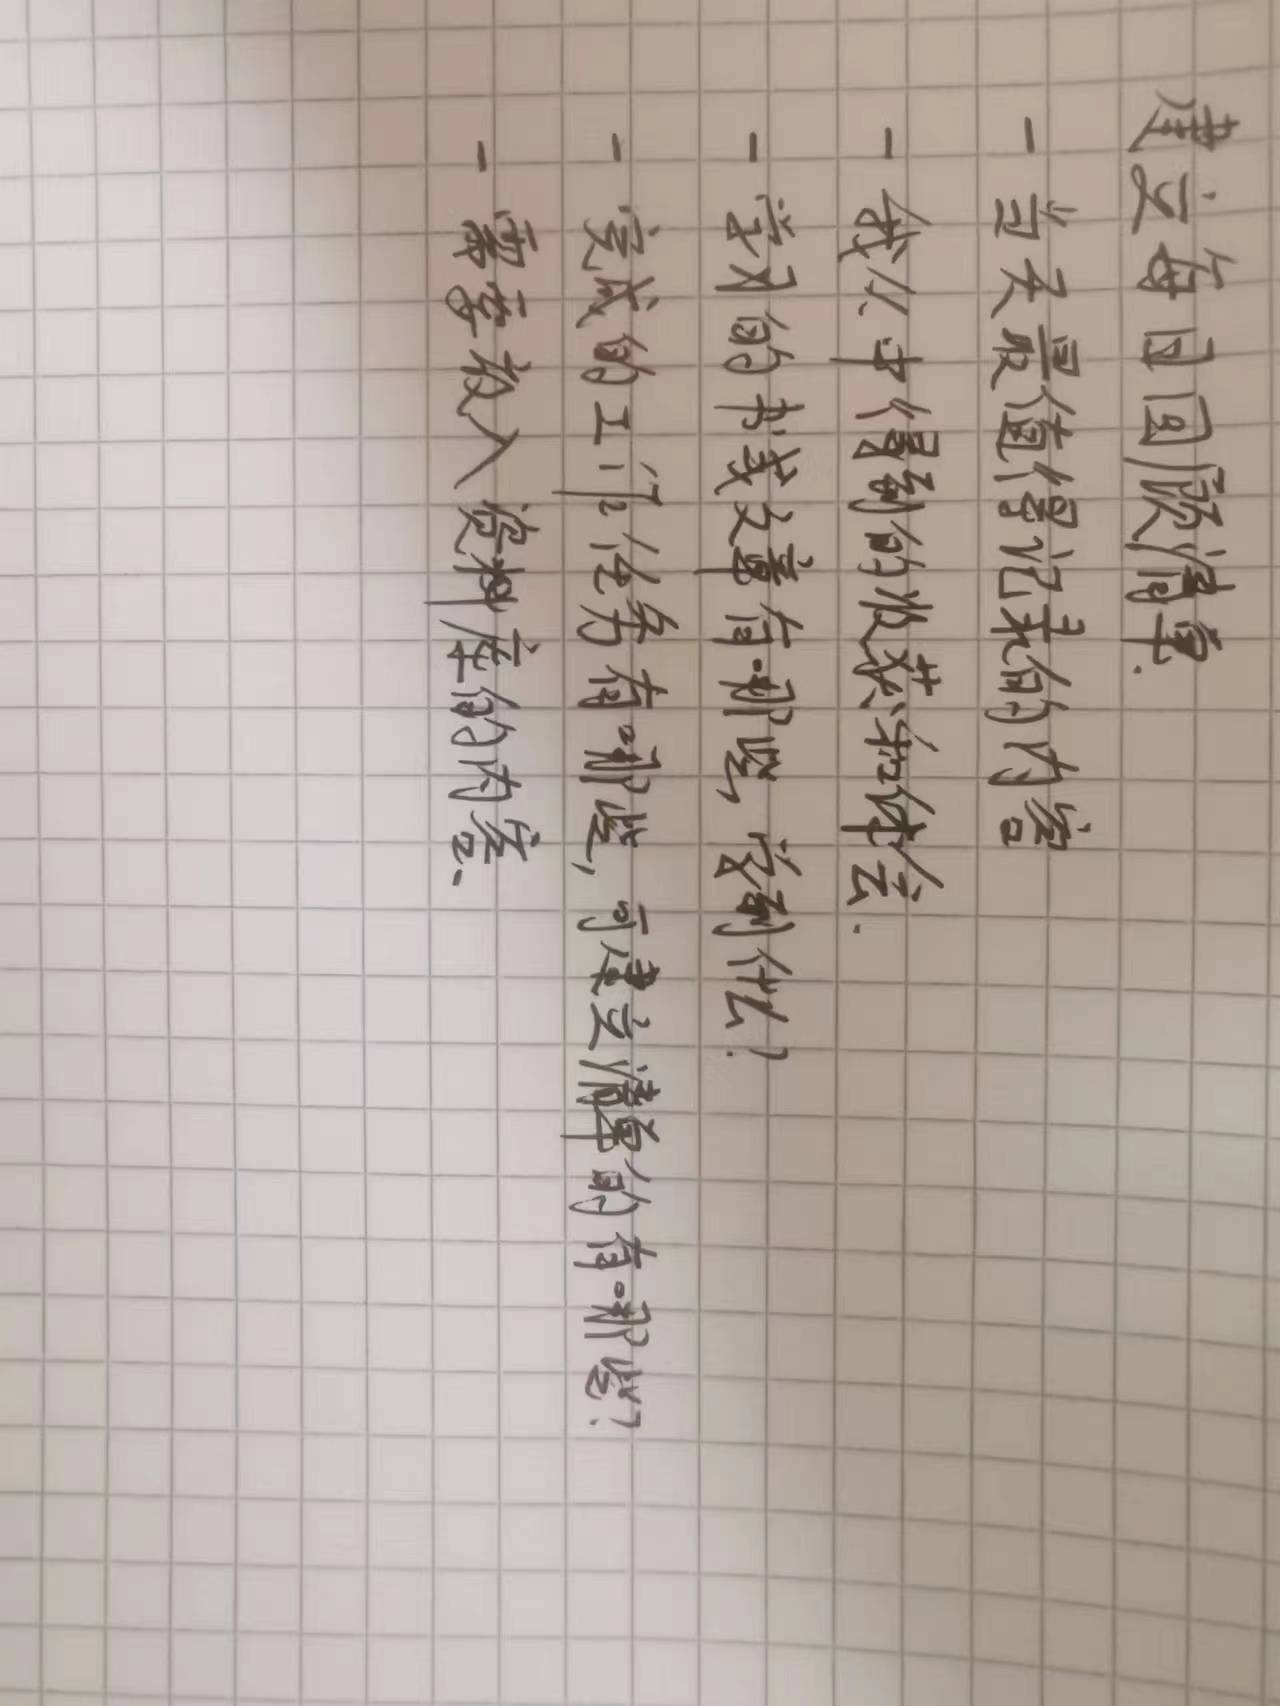 建立每日回顾清单.
- 当天最值得记录的内容
- 我从中得到的收获和体会.
- 学习的书或文章有哪些, 学到什么?
- 完成的工作任务有哪些, 可建立清单的有哪些?
- 需要放入资料库的内容.